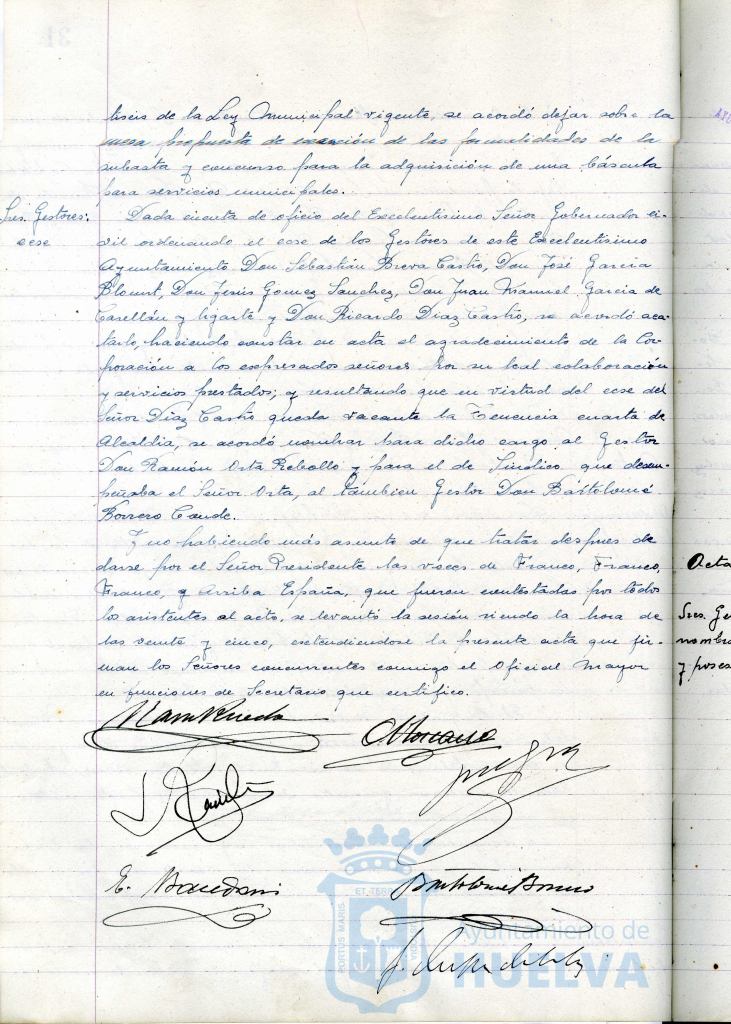 tiseis de la Ley Municipal vigente, se acordó dejar sobre la
mesa propuesta de exención de las formalidades de la
subasta y concurso para la adquisición de una báscula
para servicios municipales.
Sres. Gestores:
cese
Dada cuenta de oficio del Excelentísimo Señor Gobernador ci-
vil ordenando el cese de los Gestores de este Excelentísimo
Ayuntamiento Don Sebastián Breva Castro, Don José García
Blount, Don Jesús Gomez Sanchez, Don Juan Manuel Garcia de
Carellán y Ugarte y Don Ricardo Diaz Castro, se acordó aca-
tarlo, haciendo constar en acta el agradecimiento de la Cor-
poración a los expresados señores por su leal colaboración
y servicios prestados; y resultando que en virtud del cese del
Señor Diaz Castro queda vacante la Tenencia cuarta de
Alcaldia, se acordó nombrar para dicho cargo al Gestor
Don Ramón Orta Rebollo y para el de Sindico que desem-
peñaba el Señor Orta, al tambien Gestor Don Bártolomé
Borrero Conde.
Y no habiendo más asunto de que tratar despues de
darse por el Señor Presidente las voces de Franco, Franco,
Franco, y Arriba España, que fueron contestadas por todos
los asistentes al acto, se levantó la sesión siendo la hora de
las veinte y cinco, extendiendose la presente acta que fir-
man los Señores concurrentes conmigo el Oficial Mayor
en funciones de Secretario que certifico.
Bartolomé Borrero
E.
PORTUS MARIS ET TERRAE
Ayuntamiento de
HUELVA
Acta
Sres. Ge
nombra
y poses